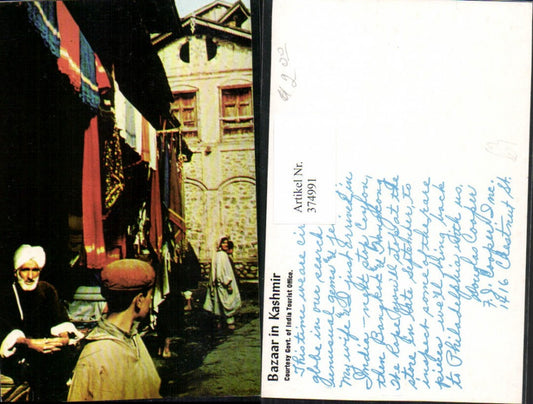 Bazaar in Kashmir
Courtesy Govt. of India Tourist Office.
Artikel Nr.
374991
This time we are cir
globe in our search
unusual gems & je
My wife & I just arrived in
India. Our next stop Ceylon,
then Bangkok & Hong Kong
We hope you'll stop at the
store in late October, to
inspect some of the rare
pieces we'll bring back
to Philadelphia with us,
Cooper
F. J. Cooper Inc.
1416 Chestnut St.